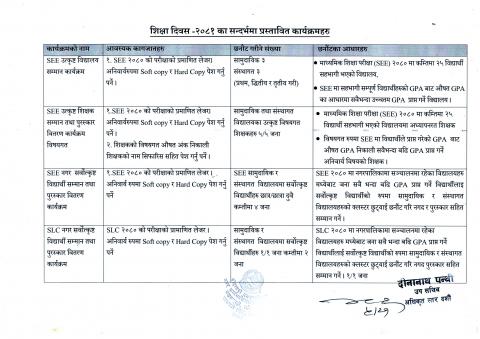 शिक्षा दिवस -२०८१ का सन्दर्भमा प्रस्तावित कार्यक्रमहरु
कार्यक्रमको नाम
आवश्यक कागजातहरु
छनौट गरिने संख्या
छनौटका आधारहरु
SEE उत्कृष्ठ विद्यालय
सम्मान कार्यक्रम
१. SEE २०८० को परीक्षाको प्रमाणित लेजर।
अनिवार्यरुपमा Soft copy र Hard Copy पेश गर्नु
पर्ने ।
सामुदायिक ३
संस्थागत ३
(प्रथम, द्वितीय र तृतीय गरी)
माध्यमिक शिक्षा परीक्षा (SEE) २०८० मा कम्तिमा २५ विद्यार्थी
सहभागी भएको विद्यालय,
SEE मा सहभागी सम्पूर्ण विद्यार्थीहरुको GPA बाट औषत GPA
का आधारमा सबैभन्दा उच्चतम GPA प्राप्त गर्ने विद्यालय ।
SEE उत्कृष्ठ शिक्षक
सम्मान तथा पुरस्कार
वितरण कार्यक्रम
विषयगत
१. SEE २०८० को परीक्षाको प्रमाणित लेजर।
अनिवार्यरुपमा Soft copy र Hard Copy पेश गर्नु
पर्ने ।
२. शिक्षकको विषयगत औषत अंक निकाली
शिक्षकको नाम सिफारिस सहित पेश गर्नु पर्ने ।
सामुदायिक तथा संस्थागत
विद्यालयका उत्कृष्ठ विषयगत
शिक्षकहरु ५/५ जना
माध्यमिक शिक्षा परीक्षा (SEE) २०८० मा कम्तिमा २५
विद्यार्थी सहभागी भएको विद्यालयमा अध्यापनरत शिक्षक
विषयगत रुपमा SEE मा विद्यार्थीले प्राप्त गरेको GPA बाट
औषत GPA निकाली सबैभन्दा बढि GPA प्राप्त गर्ने
अनिवार्य विषयको शिक्षक ।
SEE नगर सर्वोत्कृष्ट
विद्यार्थी सम्मान तथा
पुरस्कार वितरण
कार्यक्रम
१. SEE २०८० को परीक्षाको प्रमाणित लेजर ।
अनिवार्य रुपमा Soft copy र Hard Copy पेश गर्नु
पर्ने
SEE सामुदायिक र
संस्थागत विद्यालयमा सर्वोत्कृष्ठ
विद्यार्थीहरु छात्र/छात्रा दुवै
कम्तीमा ४ जना
SEE २०८० मा नगरपालिकामा सञ्चालनमा रहेका विद्यालयहरु
मध्येबाट जना सबै भन्दा बढि GPA प्राप्त गर्ने विद्यार्थीलाई
सर्वोत्कृष्ठ विद्यार्थीको रुपमा सामुदायिक र संस्थागत
विद्यालयहरुको क्लस्टर छुट्याई छनौट गरि नगद पुरस्कार सहित
सम्मान गर्ने ।
SLC नगर सर्वोत्कृष्ट
विद्यार्थी सम्मान तथा
पुरस्कार वितरण
कार्यक्रम
SLC २०८० को परीक्षाको प्रमाणित लेजर ।
अनिवार्य रुपमा Soft copy र Hard Copy पेश गर्नु
पर्ने
सामुदायिक र
संस्थागत विद्यालयमा सर्वोत्कृष्ठ
विद्यार्थीहरु १/१ जना कम्तीमा २
जना
SLC २०८० मा नगरपालिकामा सञ्चालनमा रहेका
विद्यालयहरु मध्येबाट जना सबै भन्दा बढी GPA प्राप्त गर्ने
विद्यार्थीलाई सर्वोत्कृष्ठ विद्यार्थीको रुपमा सामुदायिक र संस्थागत
विद्यालयहरुको क्लस्टर छुट्याई छनौट गरि नगद पुरस्कार सहित
सम्मान गर्ने । १/१ जना
दीनानाथ पन्थी
उप सचिब
अधिकृत स्तर दशौं